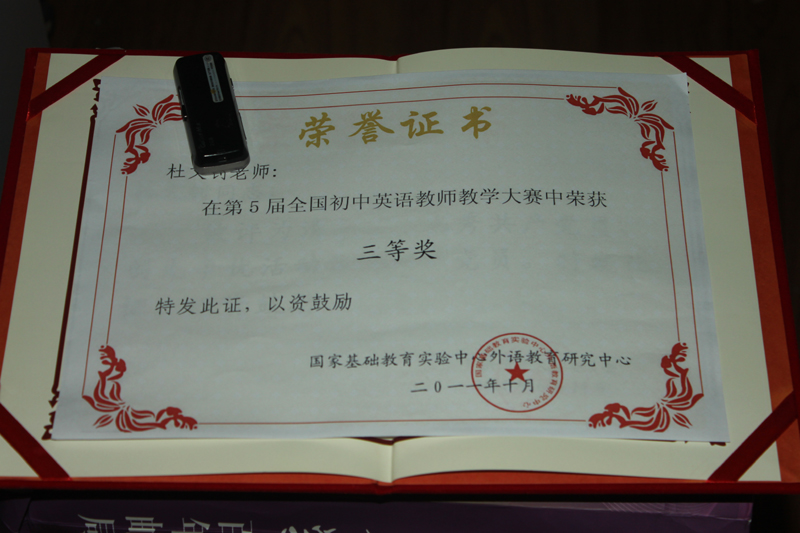 荣誉证书
杜文老师:
在第5届全国初中英语教师教学大赛中荣获
三等奖
特发此证，以资鼓励
国家基础教育实验中心外语教育研究中心
二0一一年十月
国家基础教育实验中心外语教育研究中心